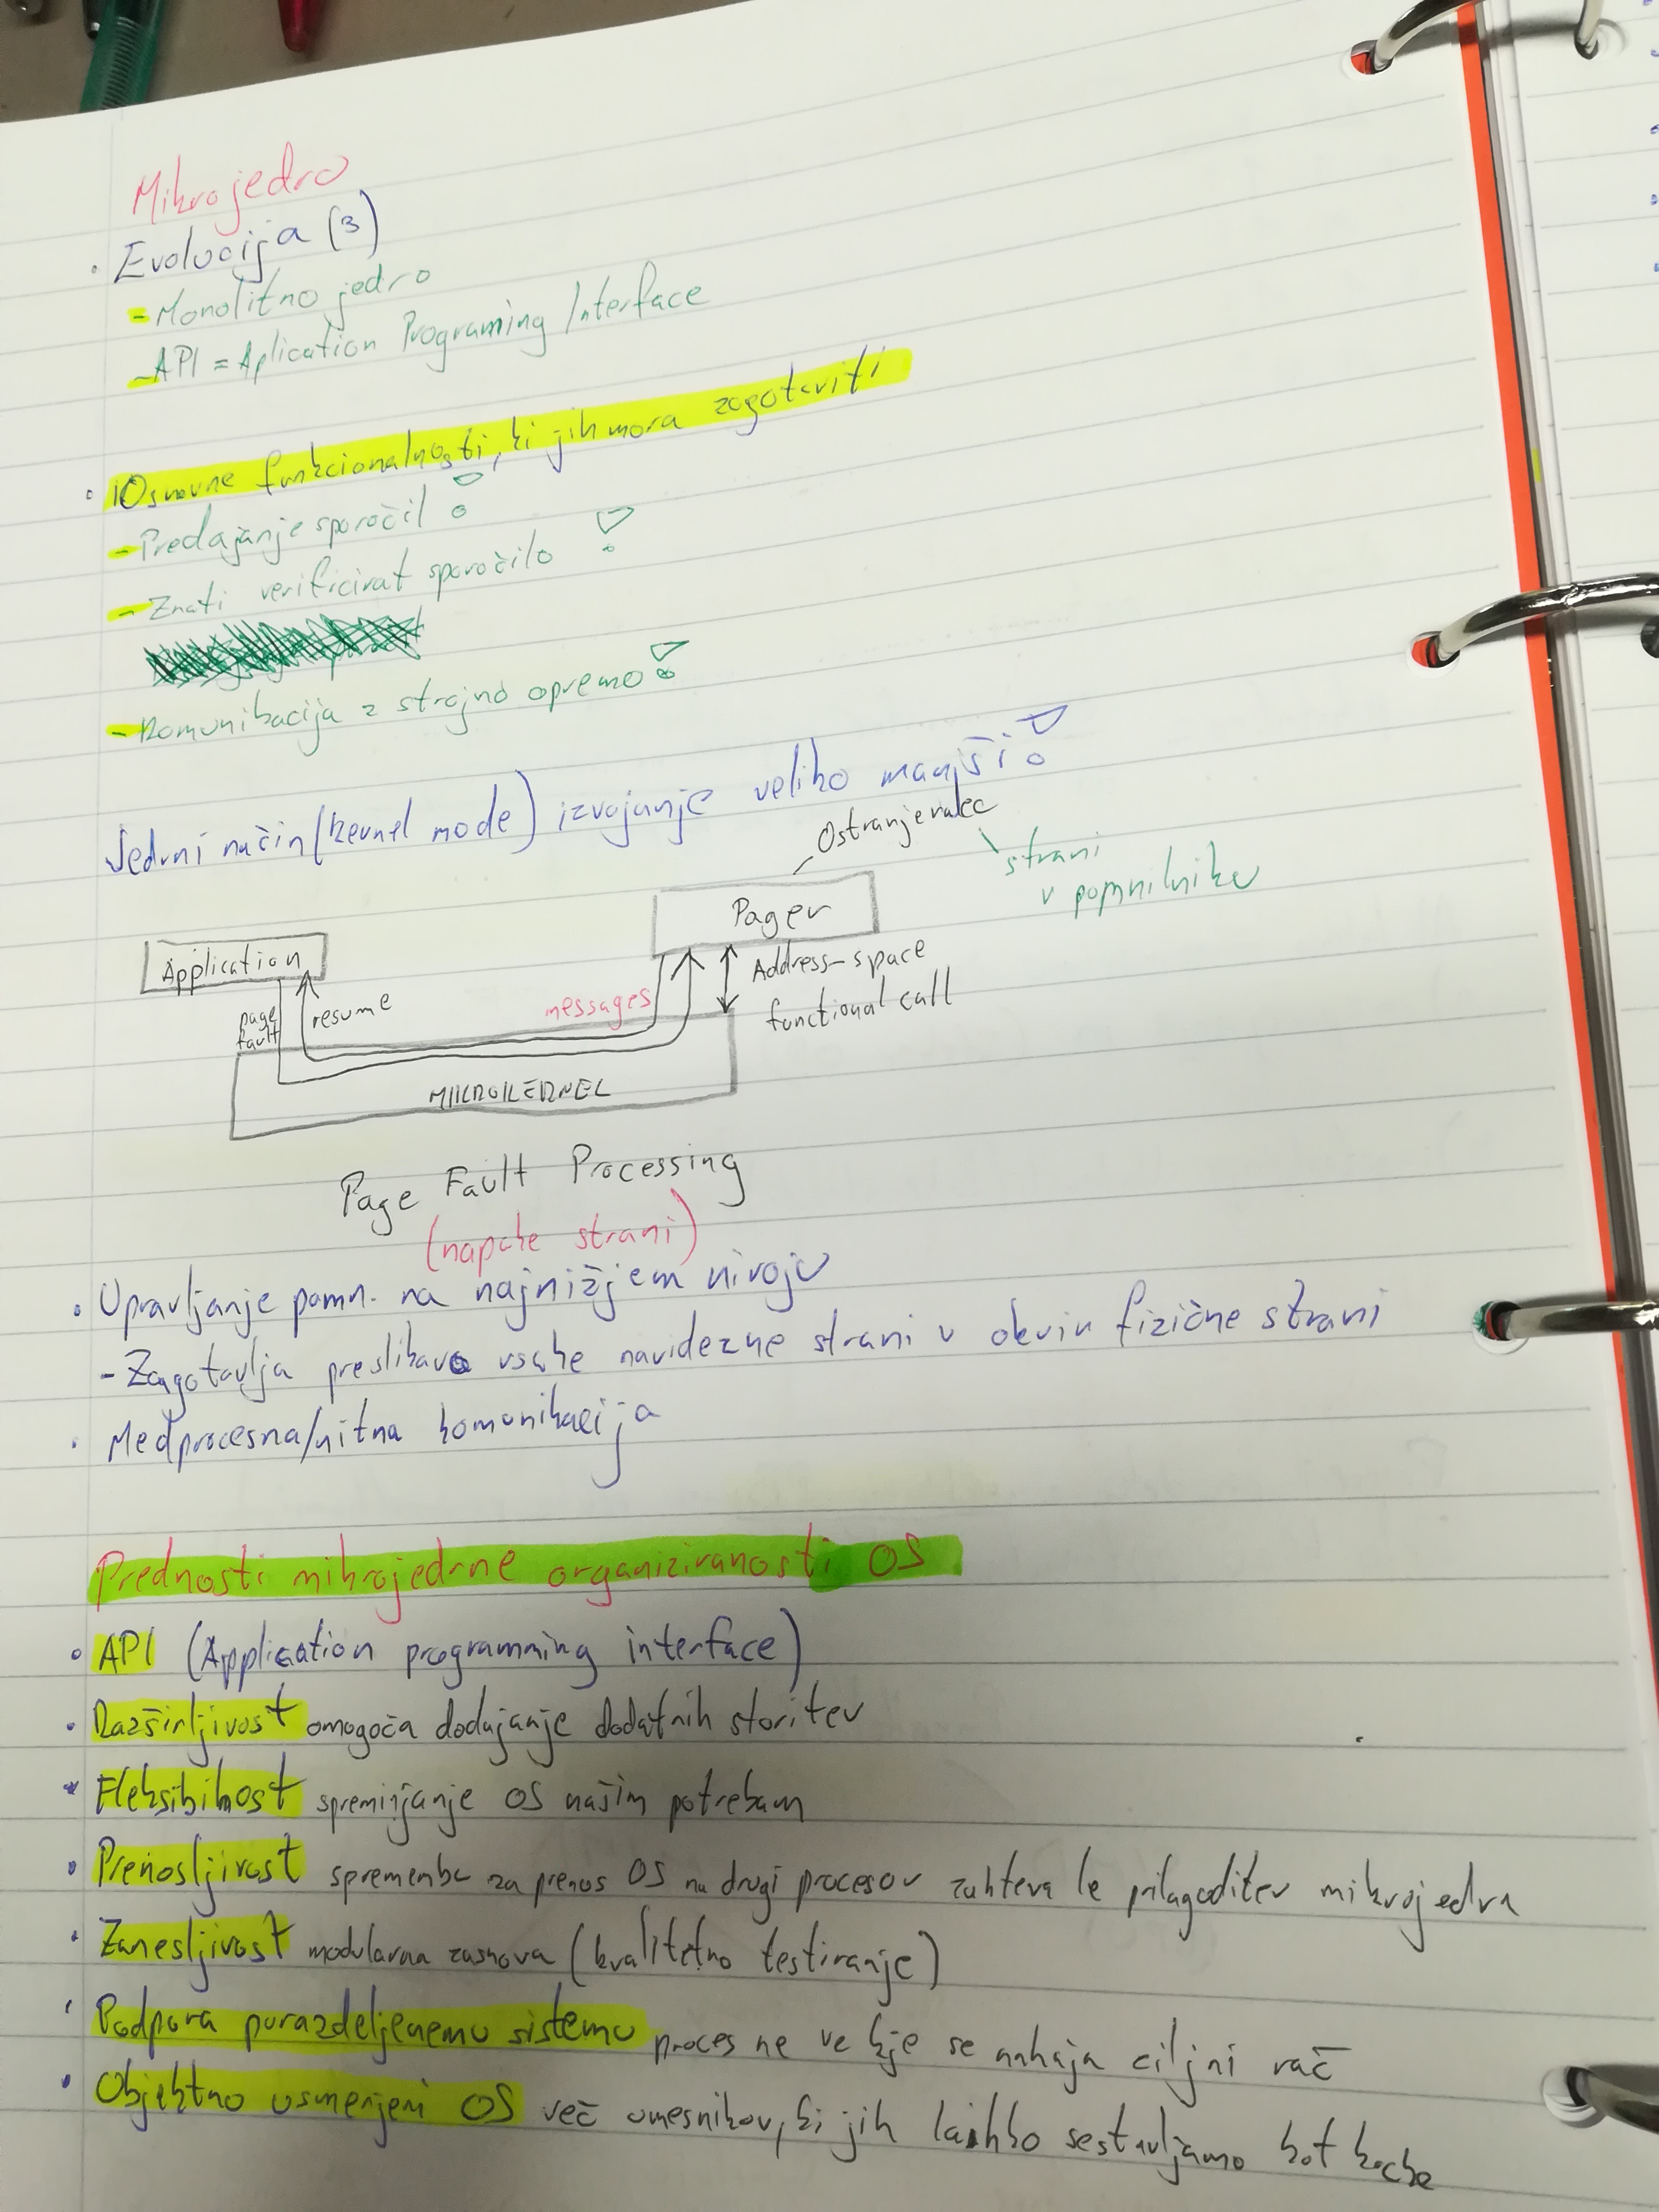 Mikrojedro
• Evolucija (3)
- Monolitno jedro
- API = Aplication Programing Interface
• Osnovne funkcionalnosti, ki jih mora zagotoviti
- Predajanje sporočil !
- Znati verificirat sporočilo !
- Komunikacija z strojno opremo !
Jedrni način (kernel mode) izvajanje veliko manjši !
Ostranjevalec
strani
v pomnilniku
Pager
Application
Address-space
functional call
messages
page
fault
resume
MIKROKERNEL
Page Fault Processing
(napake strani)
• Upravljanje pomn. na najnižjem nivoju
- Zagotavlja preslikavo vsake navidezne strani v okvir fizične strani
• Medprocesna/nitna komunikacija
Prednosti mikrojedrne organiziranosti OS
• API (Application programming interface)
• Razširljivost omogoča dodajanje dodatnih storitev
• Fleksibilnost spreminjanje OS našim potrebam
• Prenosljivost sprememba za prenos OS na drugi procesor zahteva le prilagoditev mikrojedra
• Zanesljivost modularna zasnova (kvalitetno testiranje)
• Podpora porazdeljenemu sistemu proces ne ve kje se nahaja ciljni rač
• Objektno usmerjeni OS več vmesnikov, ki jih lahko sestavljamo kot kocke